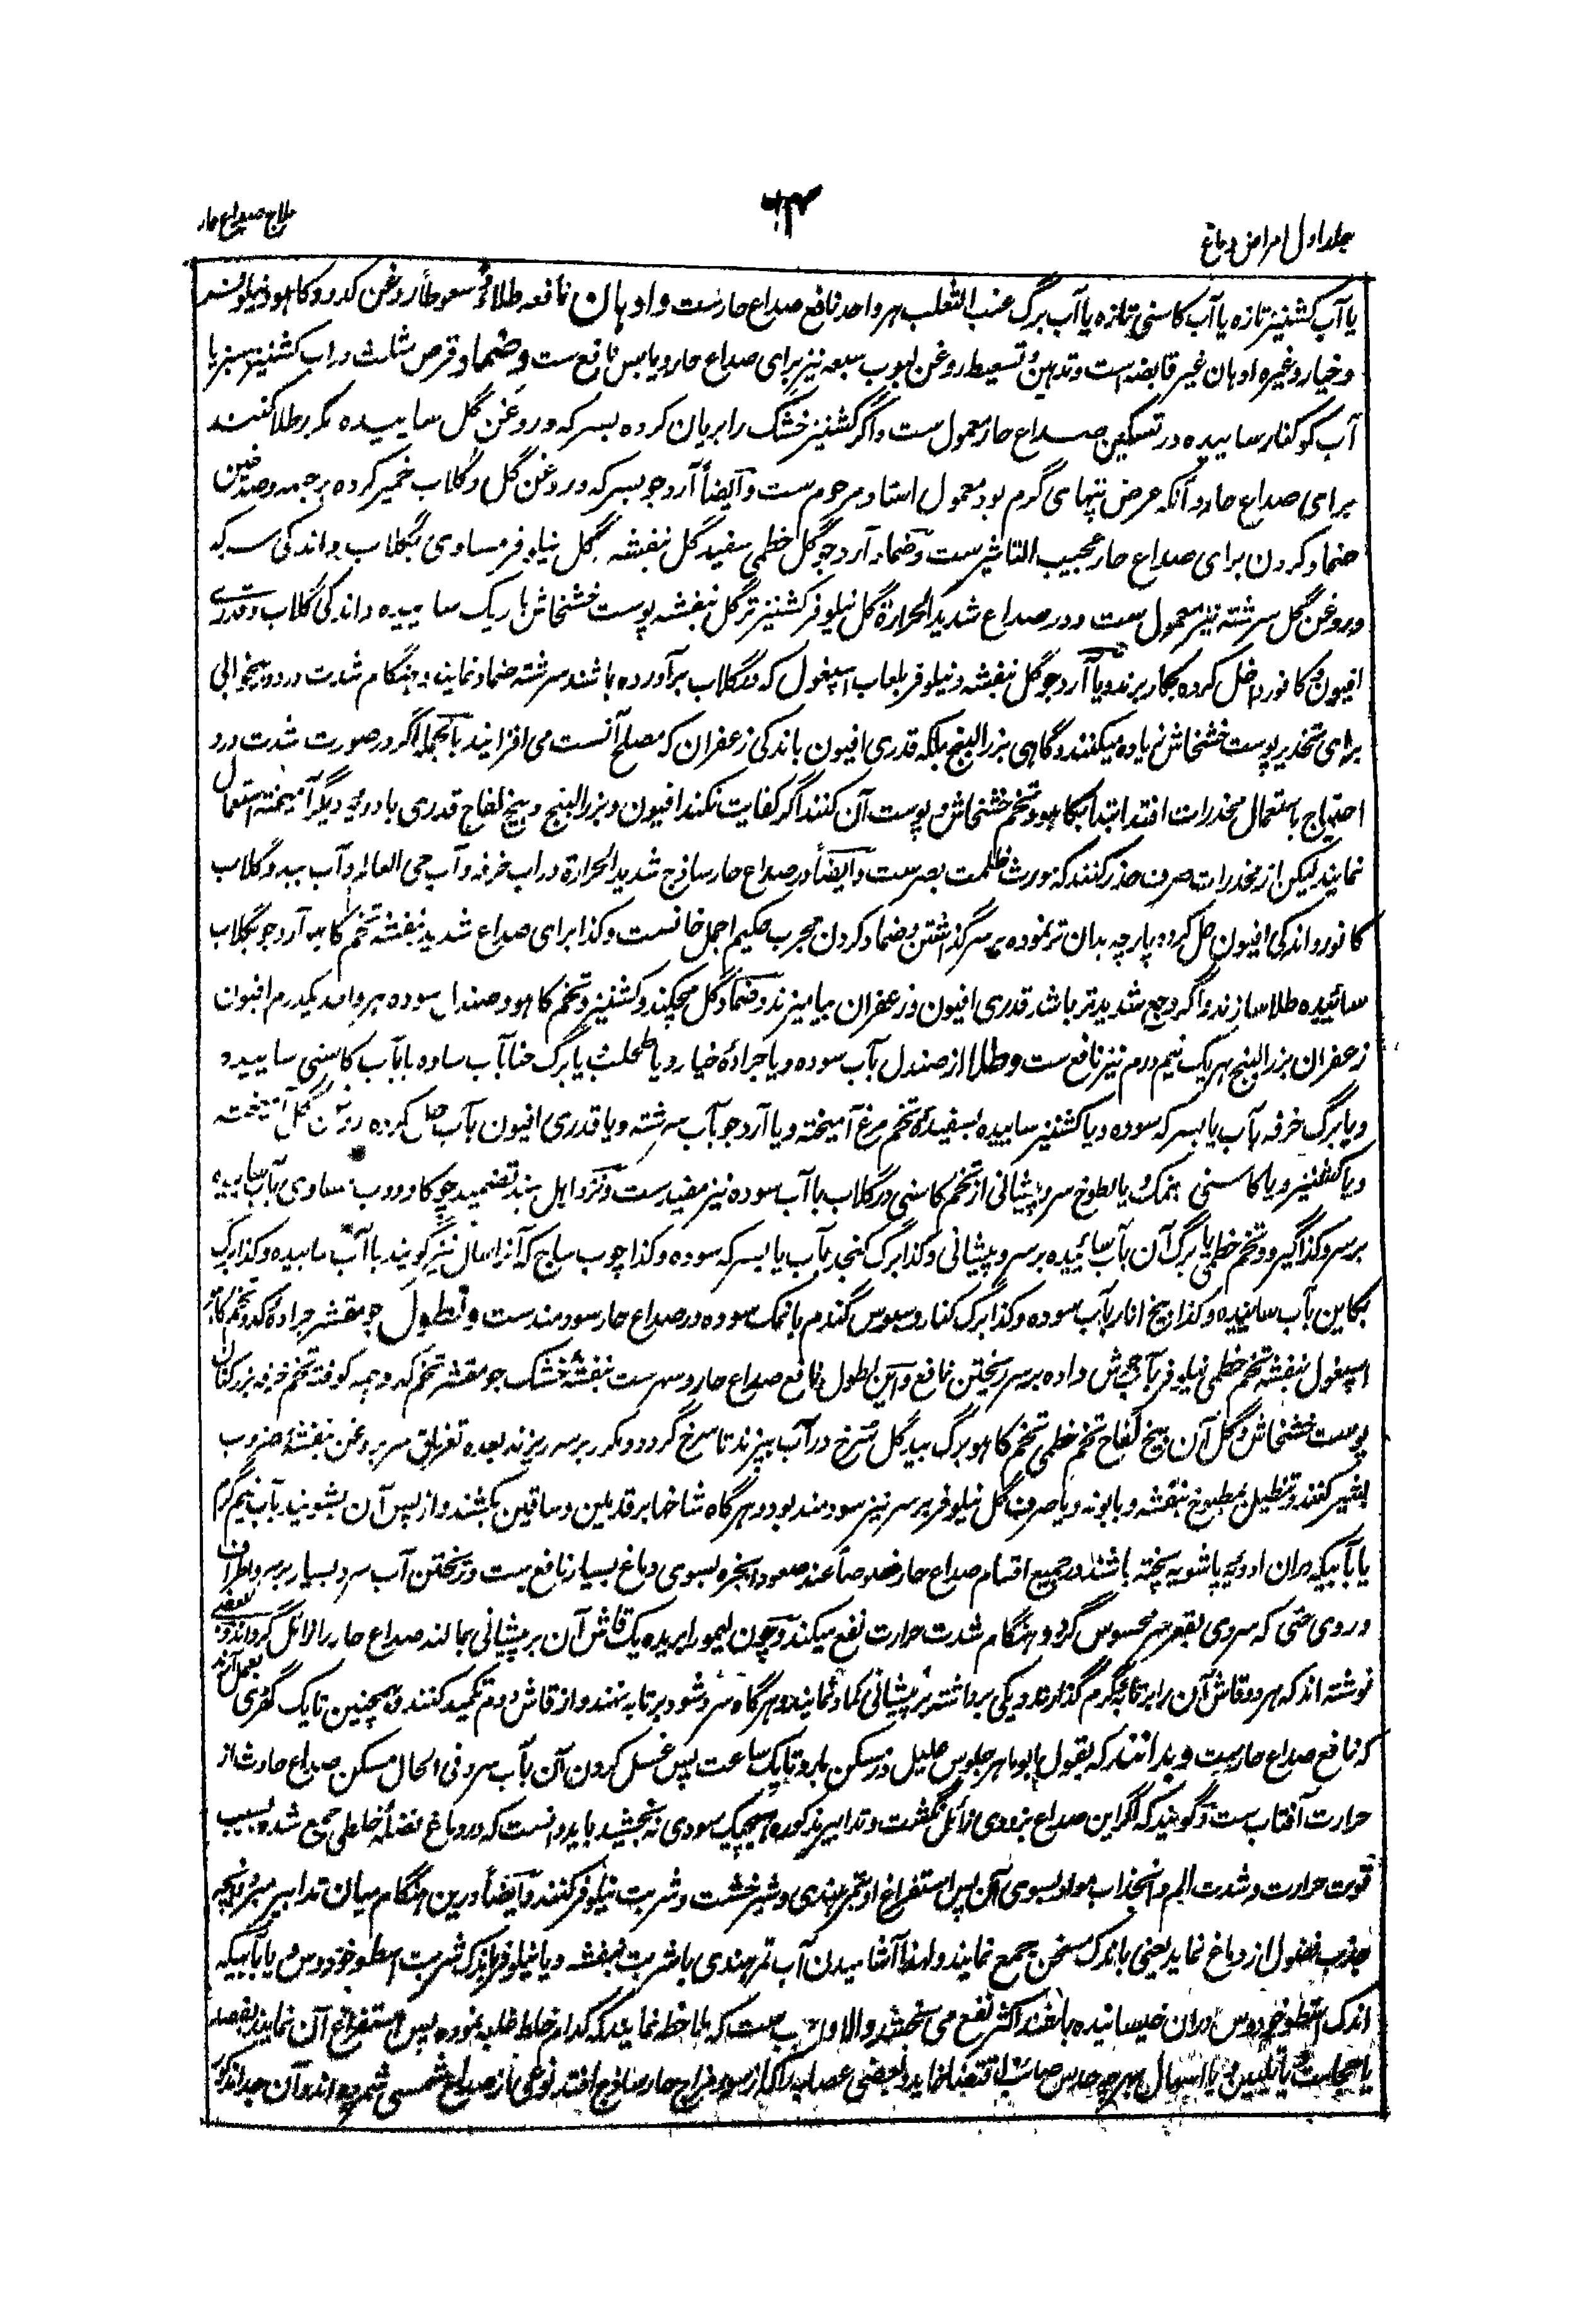 جلد اول امراض دماغ
علاج صداع حار
یا آب کشنیز تازه یا آب کاسنی تازه یا آب برگ عنب الثعلب هر واحد نافع صداع حارست و ادهان نافعه طلاءً و سعوطاً روغن کدو و کاهو و نیلوفر
و خیار و غیره ادهان غیر قابضه است و تدهین و تسعیط روغن لبوب سبعه نیز برای صداع حار و یابس نافع ست و ضماد قرص مثلث در آب کشنیز سبز یا
آب کوکنار ساییده در تسکین صداع حار معمول ست و اگر کشنیز خشک را بریان کرده بسرکه و روغن گل ساییده مکرر طلا کنند
برای صداع حار و آنکه عرض تپهای گرم بود معمول استاد مرحوم ست و ایضاً آرد جو بسرکه و روغن گل و گلاب خمیر کرده بر جبهه و صدغین
ضماد کردن برای صداع حار عجیب التاثیرست و ضماد آرد جو گل خطمی سفید گل بنفشه گل نیلوفر مساوی بگلاب و اندکی سرکه
و روغن گل سرشته نیز معمول ست و در صداع شدید الحرارة گل نیلوفر کشنیز تر گل بنفشه پوست خشخاش باریک ساییده و اندکی گلاب و قدری
افیون و کافور داخل کرده بکار برند و یا آرد جو گل بنفشه و نیلوفر بلعاب اسپغول که در گلاب برآورده باشند سرشته ضماد نمایند و هنگام شدت درد و بیخوابی
برای تخدیر پوست خشخاش زیاده میکنند و گاهی بزر البنج بلکه قدری افیون با اندکی زعفران که مصلح آنست می افزایند بالجمله اگر در صورت شدت درد
احتیاج باستعمال مخدرات افتد ابتدا بکاهو و تخم خشخاش و پوست آن کنند اگر کفایت نکند افیون و بزر البنج و بیخ لفاح قدری با دویه دیگر آمیخته استعمال
نمایند لیکن از مخدرات صرف حذر کنند که مورث ظلمت بصرست و ایضاً در صداع حار ساذج شدید الحرارة در آب خرفه و آب حی العالم و آب بید و گلاب
کافور و اندکی افیون حل کرده پارچه بدان تر نموده بر سر گذاشتن و ضماد کردن مجرب حکیم اجمل خانست و کذا برای صداع شدید بنفشه تخم کاهو آرد جو بگلاب
ساییده طلا سازند و اگر وجع شدیدتر باشد قدری افیون و زعفران بیامیزند و ضماد گل مچکند و کشنیز و تخم کاهو و صندل سوده هر واحد یکدرم افیون
زعفران بزر البنج هریک نیم درم نیز نافع ست و طلا از صندل بآب سوده و یا جراده خیار و یا طحلب یا برگ حنا بآب ساده یا بآب کاسنی ساییده
و یا برگ خرفه بآب یا بسرکه سوده و یا کشنیز ساییده بسفیده تخم مرغ آمیخته و یا آرد جو بآب سرشته و یا قدری افیون بآب حل کرده روغن گل آمیخته
و یا کشنیز و یا کاسنی بنمک و یا لطوخ سر و پیشانی از تخم کاسنی در گلاب یا آب سوده نیز مفید ست و نزد اهل هند تضمید مساوی بآب ساییده
بر سر و کذا گیرو و تخم خطمی یا برگ آن بآب ساییده بر سر و پیشانی و کذا برگ کنجد بآب یا بسرکه سوده و کذا چوب ساج که آنرا سال نیز گویند با آب ساییده و کذا برگ
بکاین بآب ساییده و کذا بیخ انار بآب سوده و کذا برگ کنار و سبوس گندم با نمک سوده در صداع حار سودمندست و نطول جو مقشر جراده کدو تخم کاهو
اسپغول بنفشه تخم خطمی نیلوفر بآب جوش داده بر سر ریختن نافع و این نطول نافع صداع حار و سهرست بنفشه خشک جو مقشر تخم کدو جمله کوفته تخم خرفه بزر کتان
پوست خشخاش و گل آن و بیخ لفاح تخم خطمی تخم کاهو برگ بید گل سرخ در آب بپزند تا سرخ گردد و مکرر بر سر ریزند بعده تغریق سر بروغن بنفشه مضروب
بشیر کنند و تنطیل بمطبوخ بنفشه و بابونه و یا صرف گل نیلوفر بر سر نیز سودمند بود و هرگاه شاخها بر قدمین و ساقین بکشند و از پس آن بشویند بآب نیم گرم
یا بآبیکه دران ادویه پاشویه پخته باشند در جمیع اقسام صداع حار خصوصاً عند صعود ابخره بسوی دماغ بسیار نافع ست و ریختن آب سرد بسیار بر سر و اطراف
و روی حتی که سردی بقعر سر محسوس گردد هنگام شدت حرارت نفع میکند و چون لیمو را بریده یک قاش آن بر پیشانی بمالند صداع حار را زائل گرداند و بعضی
نوشته اند که هر دو قاش آن را بر تابه گرم گذارند و یکی برداشته بر پیشانی کماد نمایند و هرگاه سرد شود بر تابه نهند و از قاش دوم تکمید کنند و همچنین تا یک گهری بعمل آرند
که نافع صداع حارست و بدانند که بقول ابوماهر جلوس علیل در مسکن بارد تا یک ساعت پس غسل کردن آن بآب سرد فی الحال مسکن صداع حادث از
حرارت آفتاب ست و گویند که اگر این صداع بزودی زائل نگشت و تدابیر مذکوره هیچیک سودی نبخشید باید دانست که در دماغ فضله خلطی جمع شده بسبب
قوت حرارت و شدت الم و انجذاب مواد بسوی آن پس استفراغ او بتمر هندی و شیرخشت و شربت نیلوفر کنند و ایضاً درین هنگام میان تدابیر مبرده و آنچه
جذب فضول از دماغ نماید یعنی با اندک مسخن جمع نمایند و لهذا آشامیدن آب تمر هندی با شربت بنفشه و یا نیلوفر با اندک شربت اسطوخودوس و یا بآبیکه
اندک اسطوخودوس دران خیسانیده باشند اکثر نفع می بخشد والاوجب ست که ملاحظه نمایند که کدام خلط غلبه نموده پس استفراغ آن نمایند بفصد
یا حجامت یا تلیین و یا اسهال بهرچه حدس صائب اقتضا نماید و بعضی عصابه را که از سوء مزاج حار ساذج افتد نوعی از صداع شمسی شمرده اند و آن جدا